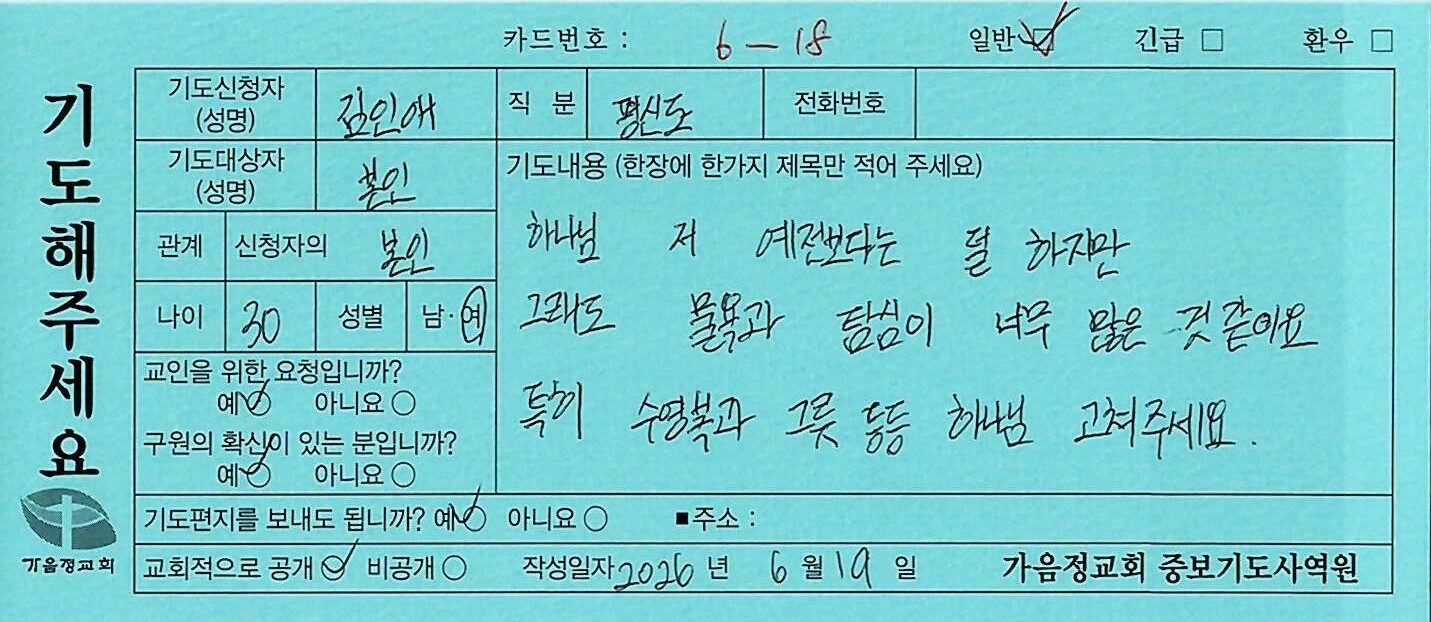 카드번호 : 6 - 18 일반 ☑ 긴급 □ 환우 □
기도해주세요
기도신청자 (성명) 김인애 직 분 평신도 전화번호
기도대상자 (성명) 본인
관계 신청자의 본인
나이 30 성별 남 · 여
교인을 위한 요청입니까?
예 ○ 아니요 ○
구원의 확신이 있는 분입니까?
예 ○ 아니요 ○
기도내용 (한장에 한가지 제목만 적어 주세요)
하나님 저 예전보다는 덜 하지만
그래도 물욕과 탐심이 너무 많은 것 같아요
특히 수영복과 그릇 등등 하나님 고쳐주세요.
기도편지를 보내도 됩니까? 예 ○ 아니요 ○ ■주소 :
교회적으로 공개 ○ 비공개 ○ 작성일자 2026 년 6 월 19 일 가음정교회 중보기도사역원
가음정교회